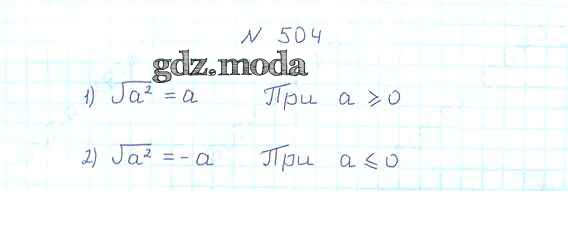 № 504
gdz.moda
1) √a² = a При a ⩾ 0
2) √a² = - a При a ⩽ 0